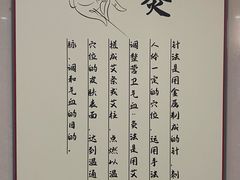 灸
针法是用金属制成的针，刺
人体一定的穴位，运用手法，
调整营卫气血；灸法是用艾绒
搓成艾条或艾柱，点燃以温
穴位的皮肤表面，达到温通经
脉、调和气血的目的。